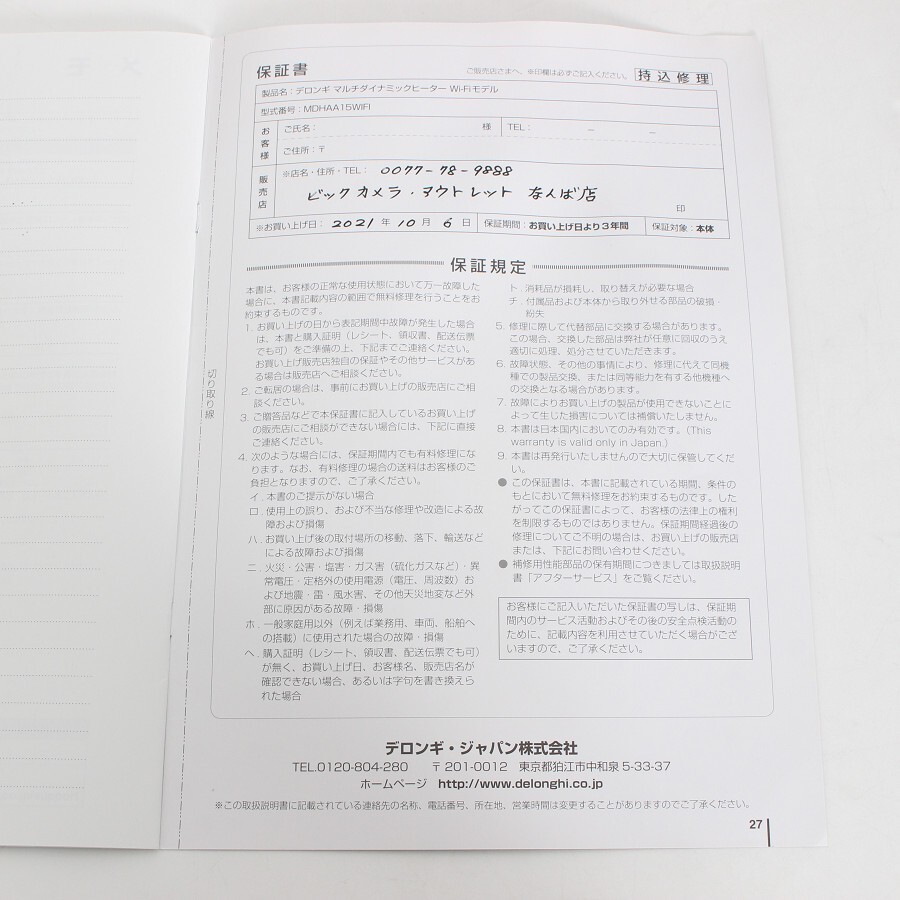 保証書
ご販売店さまへ、※印欄は必ずご記入ください。 持込修理
製品名：デロンギ マルチダイナミックヒーター Wi-Fiモデル
型式番号：MDHAA15WIFI
お客様 ご氏名： 様 TEL： － －
ご住所：〒
販売店 ※店名・住所・TEL： 0077-78-9888
ビックカメラ・アウトレット なんば店
印
※お買い上げ日： 2021 年 10 月 6 日 保証期間：お買い上げ日より3年間 保証対象：本体
保証規定
本書は、お客様の正常な使用状態において万一故障した
場合に、本書記載内容の範囲で無料修理を行うことをお
約束するものです。
1. お買い上げの日から表記期間中故障が発生した場合
は、本書と購入証明（レシート、領収書、配送伝票
でも可）をご準備の上、下記までご連絡ください。
お買い上げ販売店独自の保証やその他サービスがあ
る場合は販売店へご相談ください。
2. ご転居の場合は、事前にお買い上げの販売店にご相
談ください。
3. ご贈答品などで本保証書に記入しているお買い上げ
の販売店にご相談ができない場合には、下記に直接
ご連絡ください。
4. 次のような場合には、保証期間内でも有料修理にな
ります。なお、有料修理の場合の送料はお客様のご
負担となりますので、ご了承ください。
イ. 本書のご提示がない場合
ロ. 使用上の誤り、および不当な修理や改造による故
障および損傷
ハ. お買い上げ後の取付場所の移動、落下、輸送など
による故障および損傷
ニ. 火災・公害・塩害・ガス害（硫化ガスなど）・異
常電圧・定格外の使用電源（電圧、周波数）お
よび地震・雷・風水害、その他天災地変など外
部に原因がある故障・損傷
ホ. 一般家庭用以外（例えば業務用、車両、船舶へ
の搭載）に使用された場合の故障・損傷
ヘ. 購入証明（レシート、領収書、配送伝票でも可）
が無く、お買い上げ日、お客様名、販売店名が
確認できない場合、あるいは字句を書き換えら
れた場合
ト. 消耗品が損耗し、取り替えが必要な場合
チ. 付属品および本体から取り外せる部品の破損・
紛失
5. 修理に際して代替部品に交換する場合があります。
この場合、交換した部品は弊社が任意に回収のうえ
適切に処理、処分させていただきます。
6. 故障状態、その他の事情により、修理に代えて同機
種での製品交換、または同等能力を有する他機種へ
の交換となる場合があります。
7. 故障によりお買い上げの製品が使用できないことに
よって生じた損害については補償いたしません。
8. 本書は日本国内においてのみ有効です。(This
warranty is valid only in Japan.)
9. 本書は再発行いたしませんので大切に保管してくだ
さい。
● この保証書は、本書に記載されている期間、条件の
もとにおいて無料修理をお約束するものです。した
がってこの保証書によって、お客様の法律上の権利
を制限するものではありません。保証期間経過後の
修理についてご不明の場合は、お買い上げの販売店
または、下記にお問い合わせください。
● 補修用性能部品の保有期間につきましては取扱説明
書「アフターサービス」をご覧ください。
お客様にご記入いただいた保証書の写しは、保証期
間内のサービス活動およびその後の安全点検活動の
ために、記載内容を利用させていただく場合がござ
いますので、ご了承ください。
切り取り線
デロンギ・ジャパン株式会社
TEL.0120-804-280 〒201-0012 東京都狛江市中和泉 5-33-37
ホームページ http://www.delonghi.co.jp
※この取扱説明書に記載されている連絡先の名称、電話番号、所在地、営業時間は変更することがありますのでご了承ください。
27